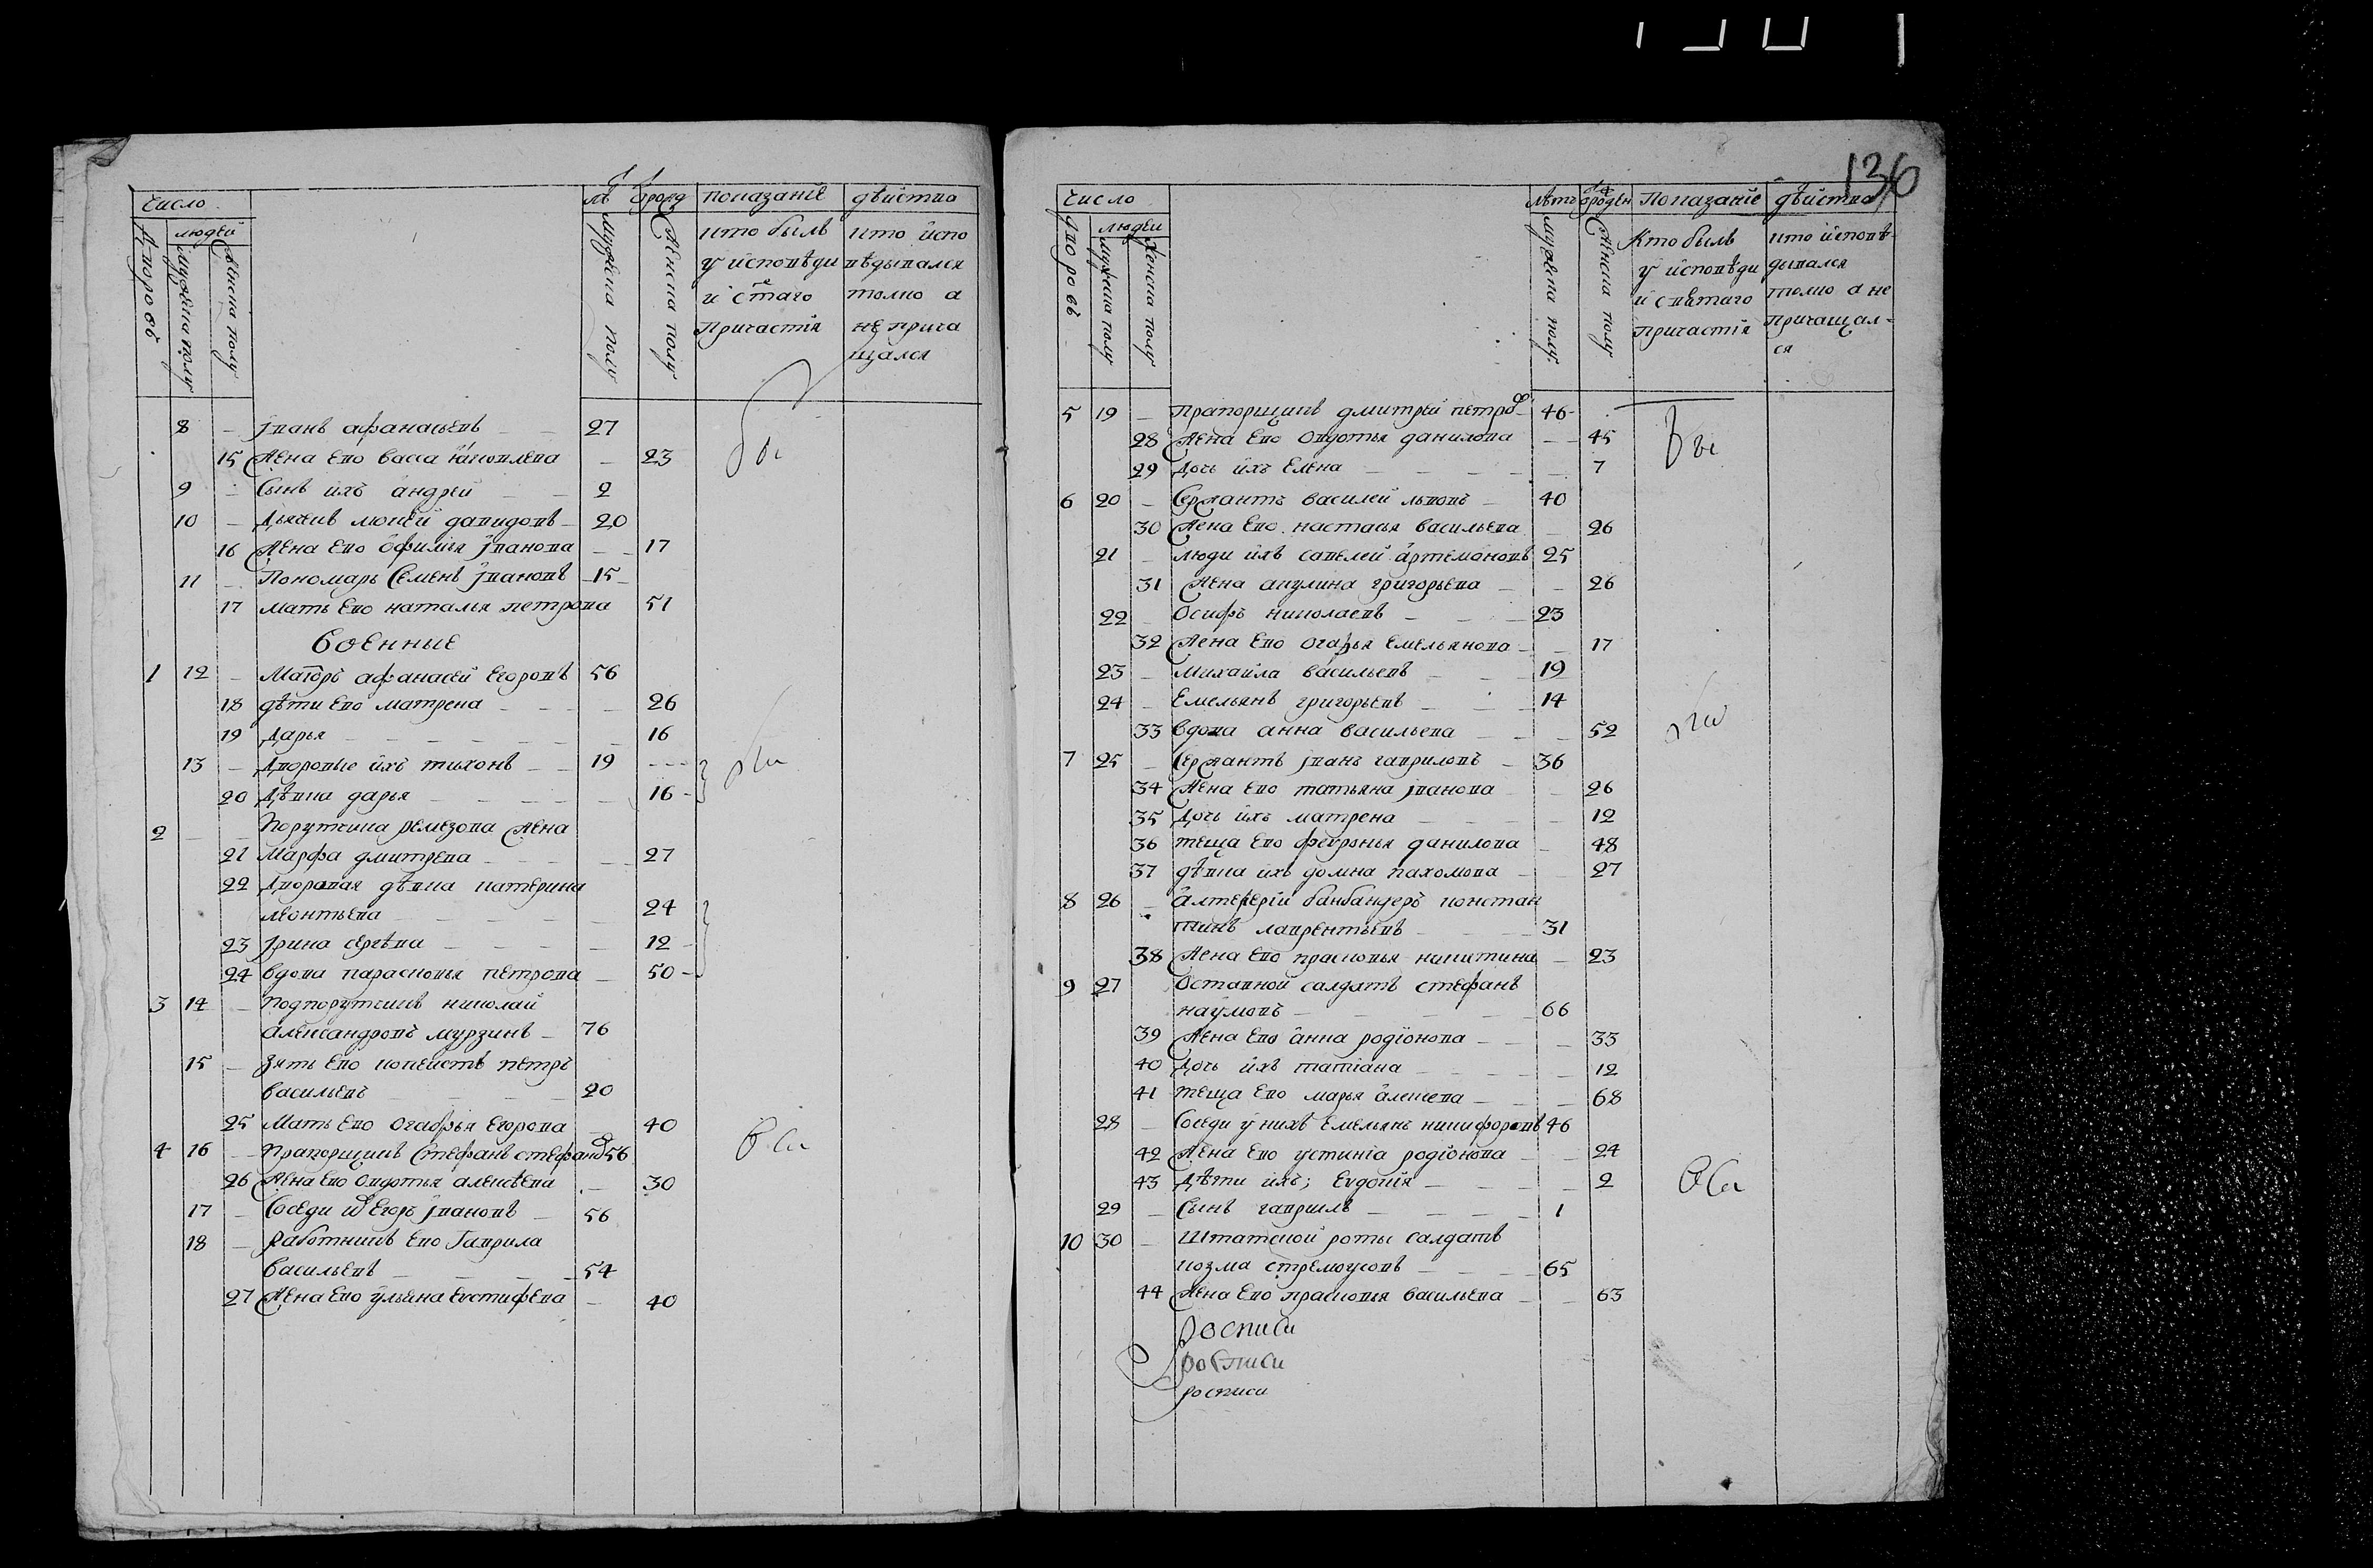 Число
людей
дворовъ
мужеска полу
женска полу
лѣ
ѿ рожд
мужеска полу
женска полу
показание
кто былъ
у исповѣди
и с̃таго
Причастія
дѣйство
кто испо
вѣдывался
толко а
не прича
щался
8 – Іванъ афанасьевъ – 27
15 Жена Ево васса яковлева – 23
9 – Сынъ ихъ андрей – 2
10 – Дьячекъ мосей давидовъ – 20
16 Жена Ево офимія Іванова – 17
11 – Пономарь Семенъ Івановъ – 15
17 мать Ево наталья петрова 51
военные
1 12 – Маіоръ афанасей Егоровъ 56
18 дѣти Ево матрена – 26
19 Дарья – 16
13 – Дворовые ихъ тихонъ – 19
20 Дѣвка дарья – 16
2 – Порутчика ремезова жена
21 Марфа дмитрева – 27
22 Дворовая дѣвка катерина
леонтьева – 24
23 Ірина сергѣва – 12
24 вдова парасковья петрова – 50
3 14 – Подпорутчикъ николай
александровъ мурзинъ – 76
15 – Зять Ево копеистъ петръ
васильевъ – 20
25 Мать Ево огафья Егорова 40
4 16 – Прапорщикъ Стефанъ стефановъ 56
26 Жена Ево овдотья алексѣева – 30
17 – Соседи ево Егоръ Івановъ – 56
18 – Работникъ Ево Гаврила
васильевъ – 54
27 Жена Ево ульяна Евстифева – 40
136
Число
людей
дворовъ
мужеска полу
женска полу
Лѣтъ
ѿ рожден
мужеска полу
женска полу
Показание
Кто былъ
у исповѣди
и святаго
причастія
дѣйство
кто исповѣ-
дывался
толко а не
причащал-
ся
5 19 – Прапорщикъ дмитрей петровъ – 46
28 Жена Ево овдотья данилова – 45
29 Дочь ихъ Елена – 7
6 20 – Сержантъ василей львовъ – 40
30 Жена Ево настасья васильева – 26
21 – люди ихъ савелей артемоновъ 25
31 Жена акулина григорьева – 26
22 – Осифъ николаевъ – 23
32 Жена Ево огафья Емельянова – 17
23 – михайла васильевъ – 19
24 – Емельянъ григорьевъ – 14
33 вдова анна васильева – 52
7 25 – Сержантъ Іванъ гавриловъ – 36
34 Жена Ево татьяна Іванова – 26
35 Дочь ихъ матрена – 12
36 теща Ево февронья данилова – 48
37 дѣвка ихъ домна пахомова – 27
8 26 – Алтелерїи банбандеръ констан
тинъ лаврентьевъ – 31
38 Жена Ево прасковья никитина – 23
9 27 Оставной салдатъ стефанъ
наумовъ – 66
39 Жена Ево анна родіонова – 33
40 Дочь ихъ татіана – 12
41 теща Ево марья алексева – 68
28 – Соседи у нихъ Емельянъ никифоровъ 46
42 Жена Ево устиніа родіонова – 24
43 Дѣти ихъ; Евдокія – 2
29 – Сынъ гаврилъ – 1
10 30 – Штатской роты салдатъ
козма стремоусовъ – 65
44 Жена Ево прасковья васильева – 63
росписи
росписи
росписи